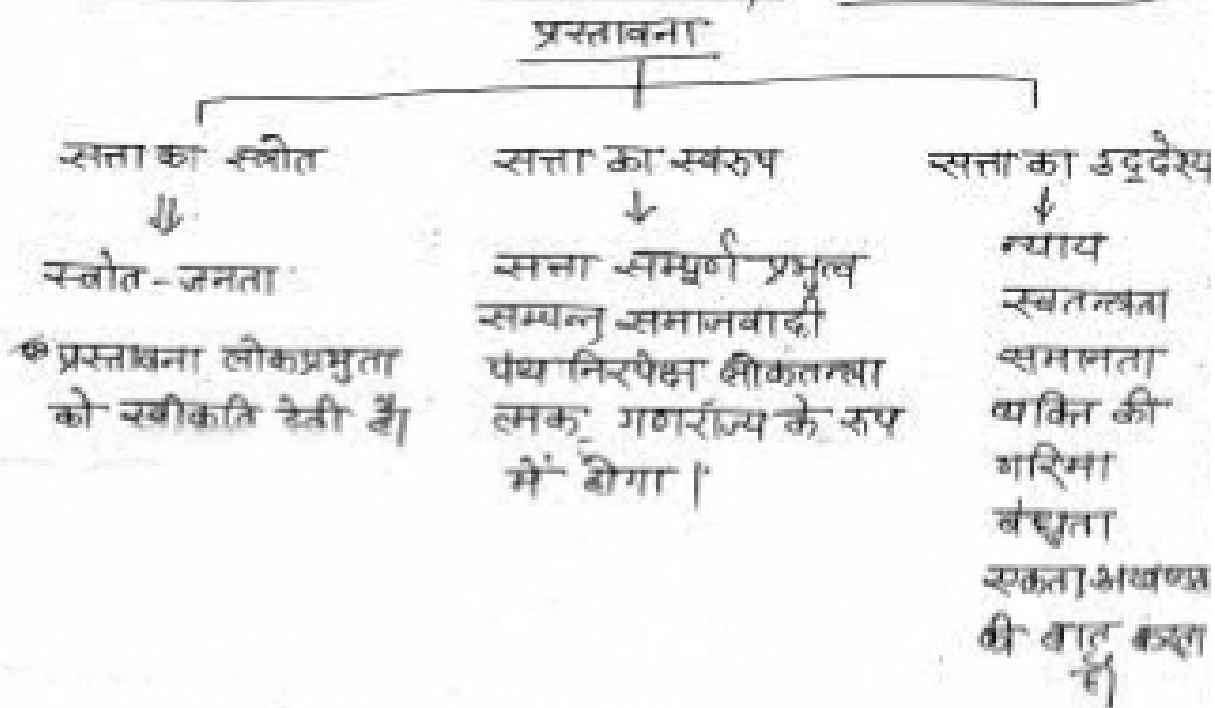 प्रस्तावना
सत्ता का स्त्रोत
स्त्रोत - जनता
प्रस्तावना लोकप्रभुता
को स्वीकति देती है।
सत्ता का स्वरुप
सत्ता सम्पूर्ण प्रभुत्व
सम्पन्न समाजवादी
पंथ निरपेक्ष लोकतन्त्रा
त्मक गणराज्य के रुप
में होगा।
सत्ता का उद्देश्य
न्याय
स्वतन्त्रता
समानता
व्यक्ति की
गरिमा
बंधुता
एकता।
की बात करता
है।